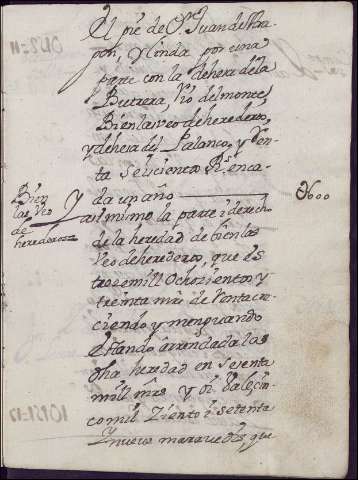 El pie de Sn Juan de
pon, y linda por una
parte con la dehesa de la
Butrera, Rio del monte,
Bien las veo de herederos,
y dehesa del Palanco, y Ren-
ta seiscientos Rs. en ca-
da un año
600
Bien
las Veo
de
herederos
Y asi mismo la parte i derecho
de la heredad de bien las
Veo de herederos, que es
tres mill Ochocientos y
treinta mrs de Renta cre-
ciendo y menguando
estando arrendada la
dha heredad en sesenta
mill mrs y oi Vale cin-
co mil Ziento i setenta
y nueve maravedis, que